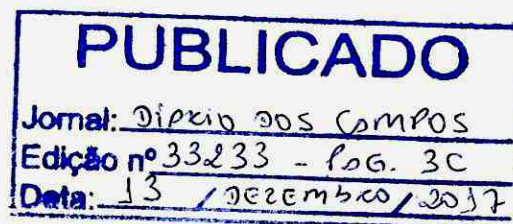 PUBLICADO
Jornal: DIÁRIO DOS CAMPOS
Edição nº 33233 - PAG. 3C
Data: 13 / DEZEMBRO / 2017